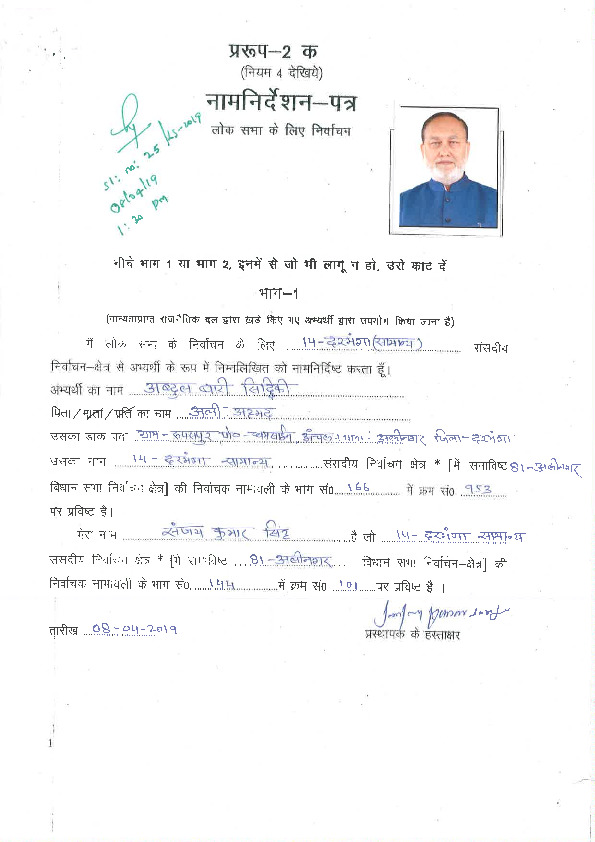 प्ररूप–2 क
(नियम 4 देखिये)
नामनिर्देशन–पत्र
लोक सभा के लिए निर्वाचन
sl: no: 25/LS-2019
08/04/19
1:20 pm
नीचे भाग 1 या भाग 2, इनमें से जो भी लागू न हो, उसे काट दें
भाग–1
(मान्यताप्राप्त राजनैतिक दल द्वारा खड़े किए गए अभ्यर्थी द्वारा उपयोग किया जाना है)
मैं लोक सभा के निर्वाचन के लिए 14-दरभंगा(सामान्य) संसदीय
निर्वाचन–क्षेत्र से अभ्यर्थी के रूप में निम्नलिखित को नामनिर्दिष्ट करता हूँ।
अभ्यर्थी का नाम अब्दुल बारी सिद्दिकी
पिता/माता/पति का नाम अली अहमद
उसका डाक पता ग्राम- रुपसपुर पो०- थाना: अलीनगर जिला-दरभंगा
उसका नाम 14-दरभंगा सामान्य संसदीय निर्वाचन क्षेत्र * [में समाविष्ट 81-अलीनगर
विधान सभा निर्वाचन क्षेत्र] की निर्वाचक नामावली के भाग सं० 166 में क्रम सं० 953
पर प्रविष्ट है।
मेरा नाम संजय कुमार सिंह है जो 14-दरभंगा सामान्य
संसदीय निर्वाचन क्षेत्र * [में समाविष्ट 81-अलीनगर विधान सभा निर्वाचन–क्षेत्र] की
निर्वाचक नामावली के भाग सं० 144 में क्रम सं० 101 पर प्रविष्ट है ।
तारीख 08-04-2019
प्रस्थापक के हस्ताक्षर
1